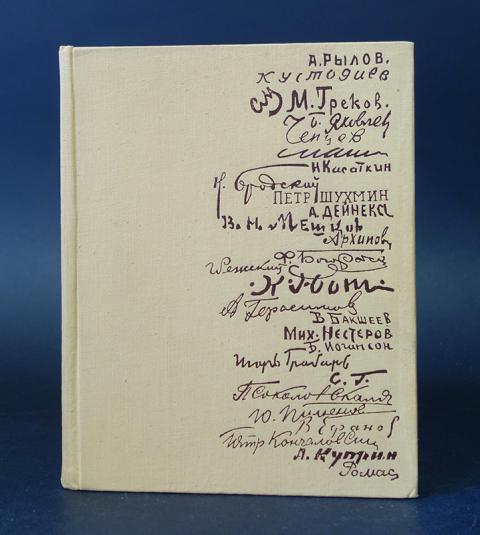 А. РЫЛОВ.
Кустодиев
М. Греков.
Б. Яковлев
Ченцов
Н Касаткин
Бродский
ПЕТР ШУХМИН
А. ДЕЙНЕКА
В. Н. МЕШКОВ
Архипов
Ряжский Ф. Богород
К. Юон.
А Герасимов
В БАКШЕЕВ
МИХ. НЕСТЕРОВ
Б. ИОГАНСОН
Игорь Грабарь
С. Г.
П Соколов Скаля
Ю. Пименов
Петр Кончаловский
А. Куприн
Ромас